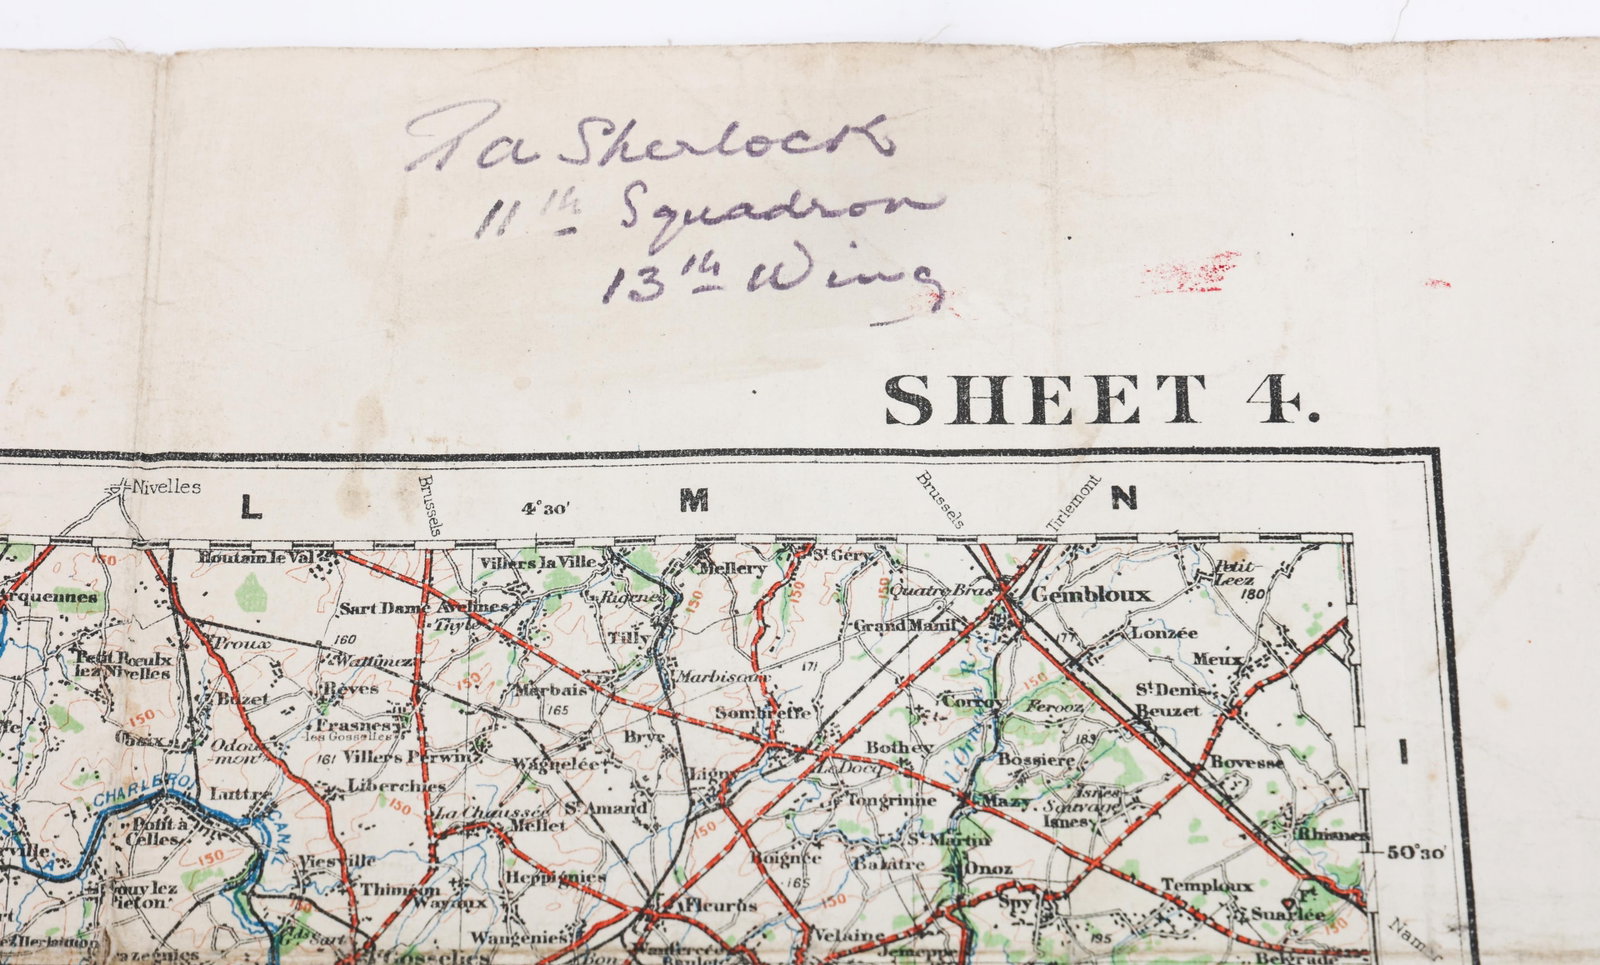 Sherlock
11th Squadron
13th Wing
SHEET 4.
Nivelles
L
Brussels
4°30'
M
Brussels
Tirlemont
N
150
Houtain le Val
Villers la Ville
Mellery
St Géry
150
150
Petit-
Leez
180
arquennes
Sart Dame Avelines
Rigenée
150
Quatre Bras
Gembloux
Thyle
Tilly
Grand Manil
177
Lonzée
Petit Rœulx
lez Nivelles
Proux
160
Wattimez
171
Meux
Buzet
Rèves
150
Marbais
Marbisoux
150
St Denis
165
Sombreffe
Corroy
Ferooz
Beuzet
150
Frasnes
les Gosselies
Obaix
Odou-
mont
161
Villers Perwin
Brye
Bothey
183
Wagnelée
Le Docq
Bossiere
Bovesse
CHARLEROI
Luttre
Liberchies
Ligny
L'Orneau R
150
La Chaussée
St Amand
Tongrinne
Mazy
Isnes
Sauvage
Isnes
CANAL
Pont à
Celles
Mellet
150
St Martin
Rhisnes
50°30'
ville
150
Viesville
Boignée
Balâtre
Onoz
Heppignies
165
Thiméon
Wayaux
Fleurus
Spy
Temploux
Ft
Suarlée
Gouy lez
Pieton
Wangenies
Velaine
195
150
Gosselies
Wanfercée
Baulet
Jemeppe
Belgrade
Nam